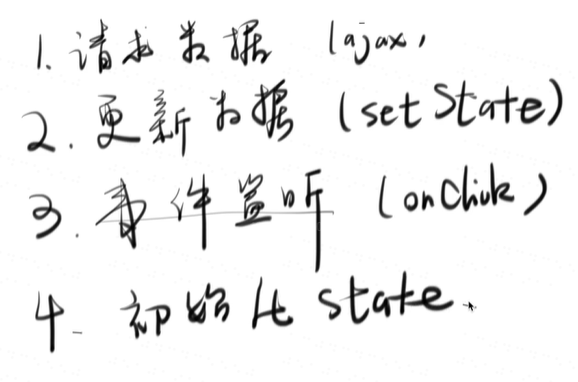 1. 请求数据 (ajax,
2. 更新数据 (setState)
3. 事件监听 (onClick)
4. 初始化 state.